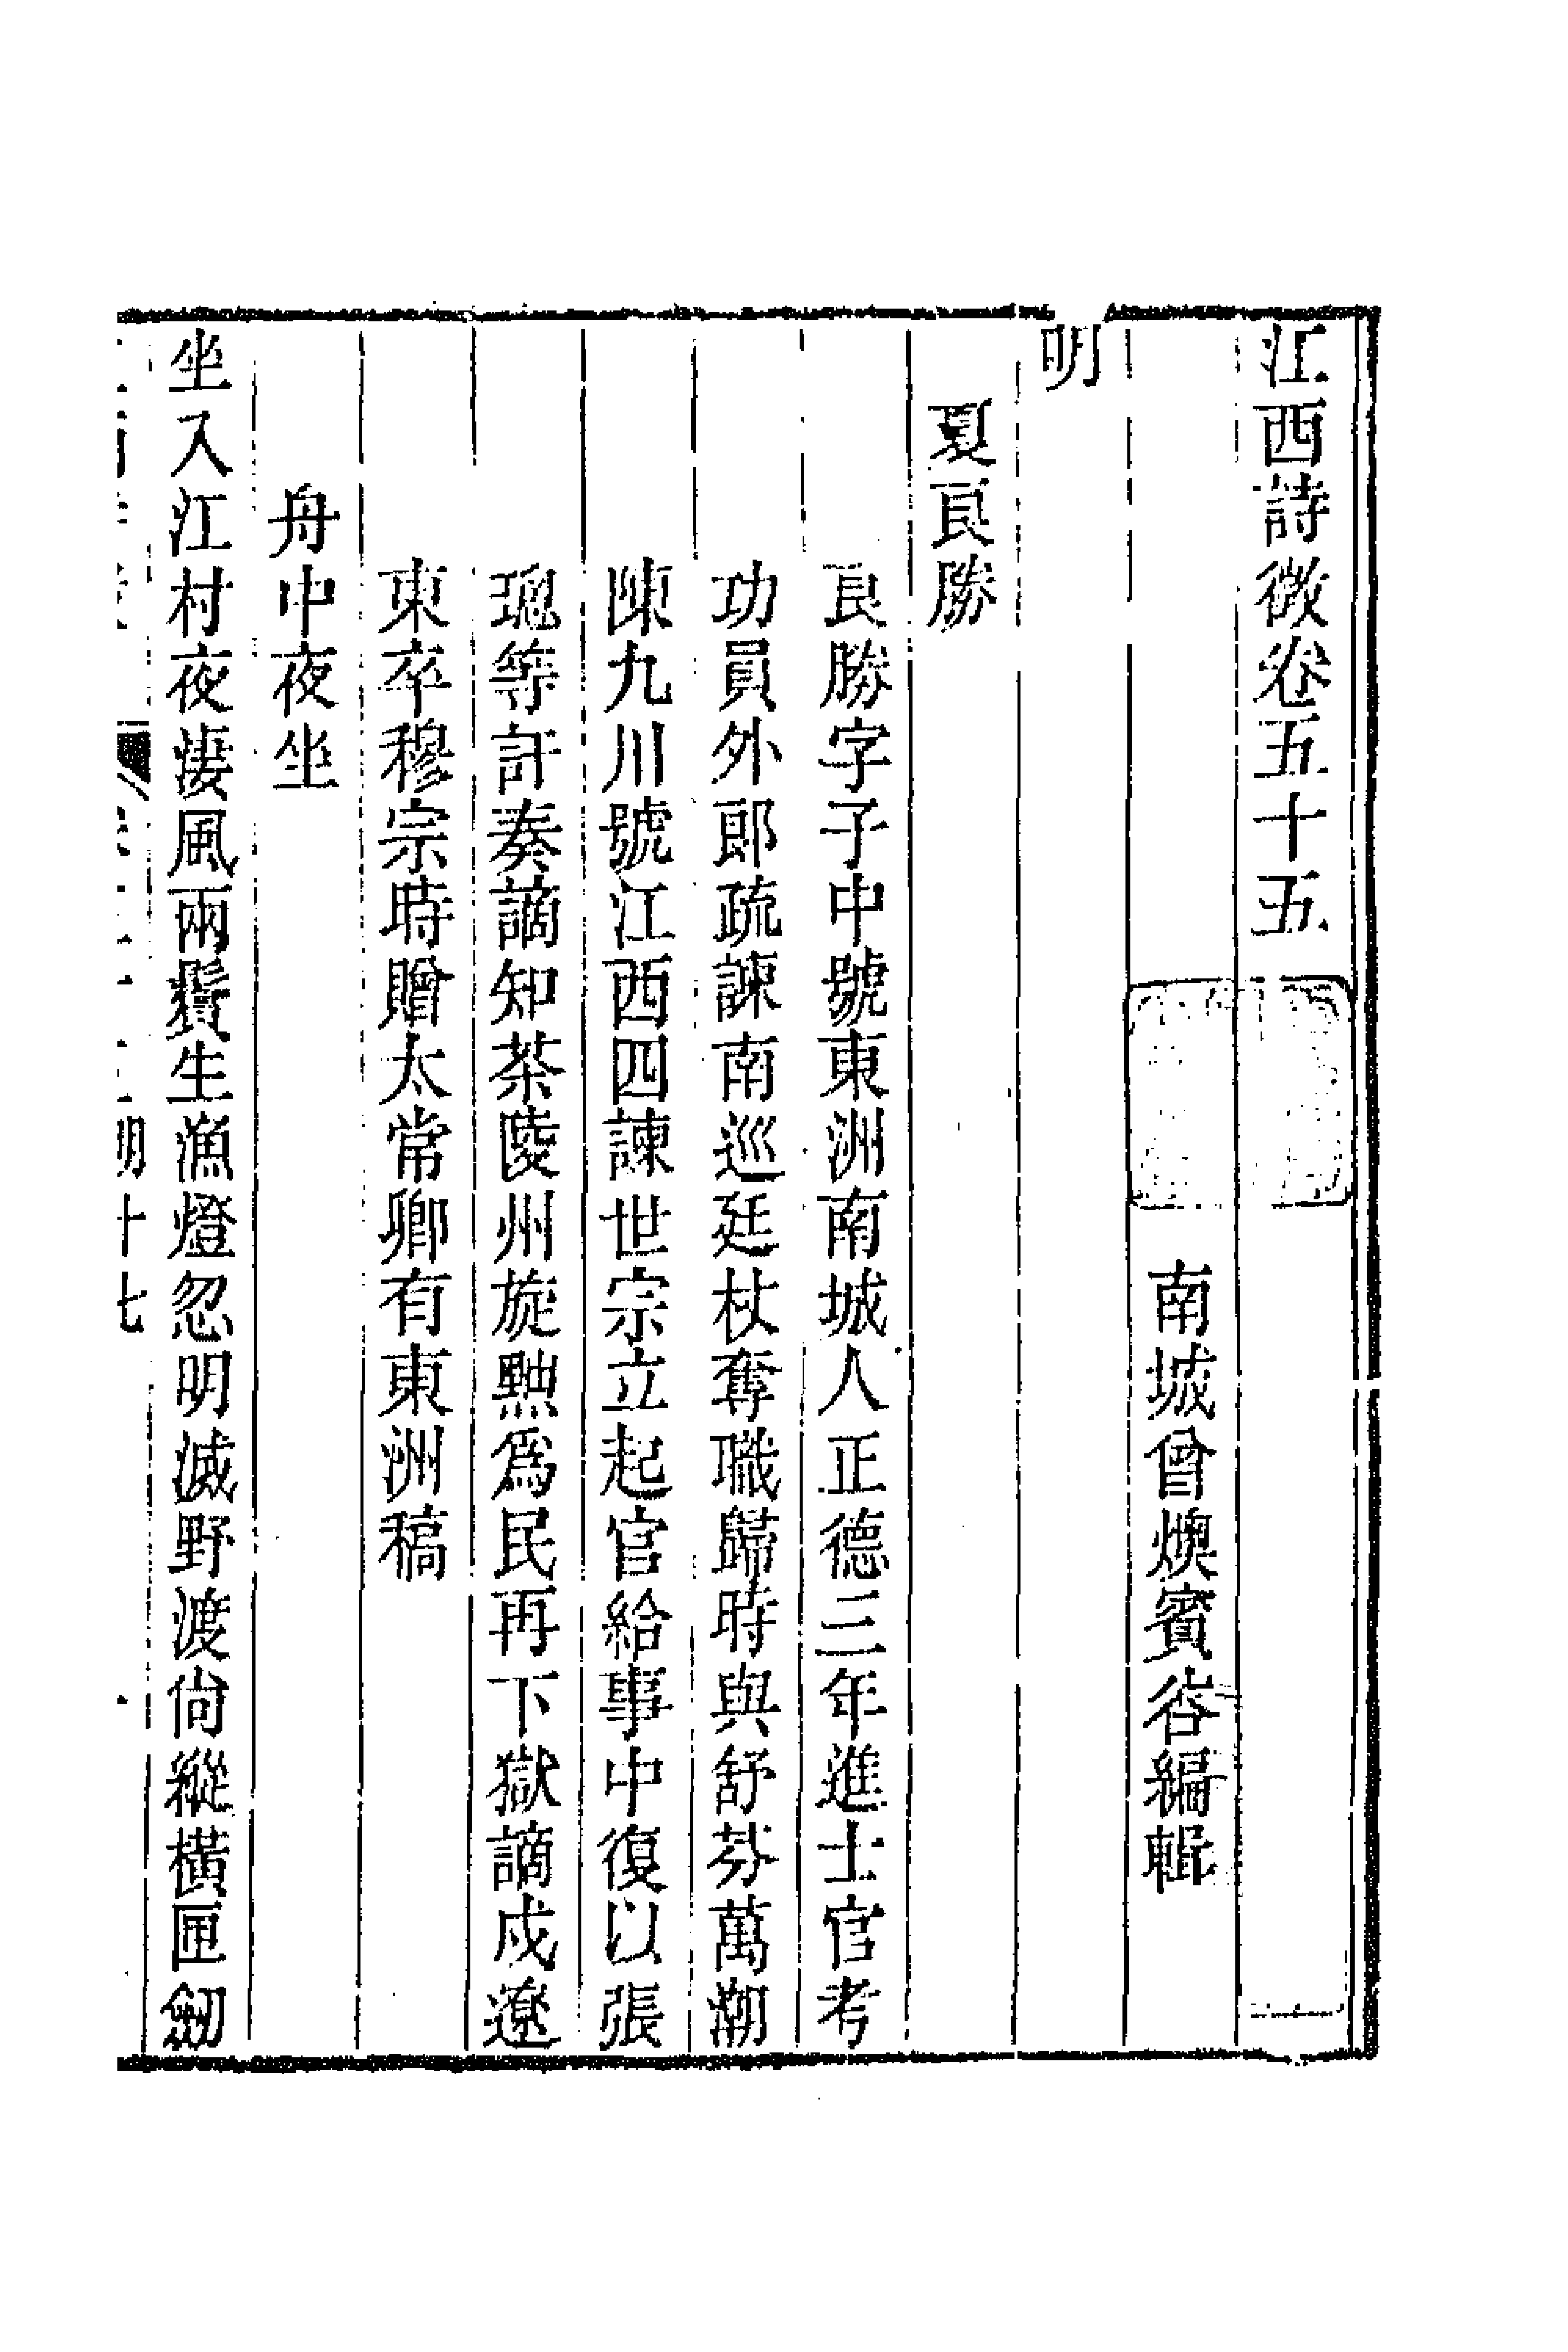 江西詩徵卷五十五
南城曾燠賓谷編輯
明
夏良勝
良勝字子中號東洲南城人正德三年進士官考
功員外郎疏諫南巡廷杖奪職歸時與舒芬萬潮
陳九川號江西四諫世宗立起官給事中復以張
璁等訐奏謫知茶陵州旋黜爲民再下獄謫戍遼
東卒穆宗時贈太常卿有東洲稿
舟中夜坐
坐入江村夜淒風兩鬢生漁燈忽明滅野渡尙縱橫匣劒
明十七